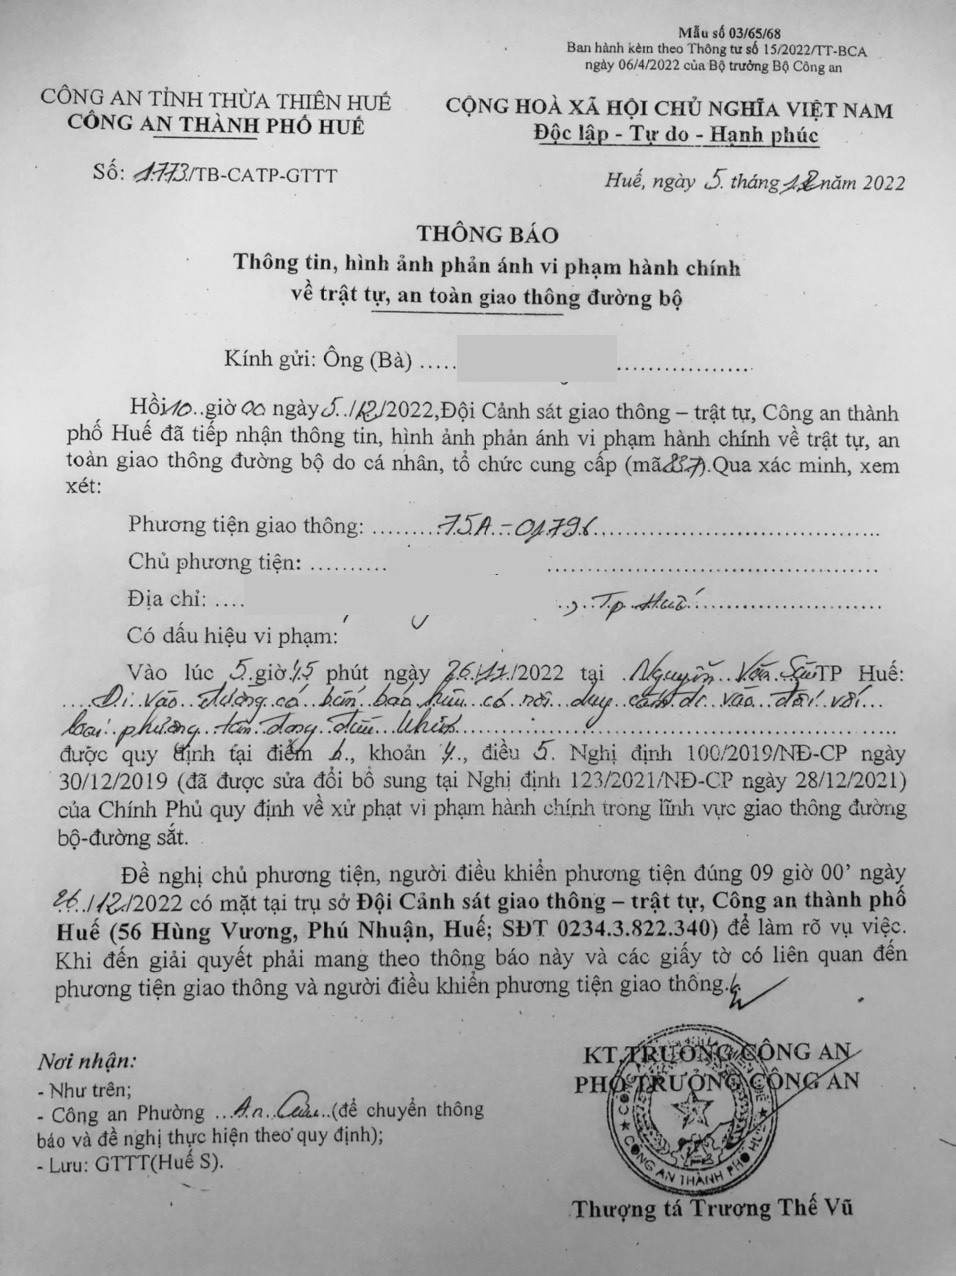 Mẫu số 03/65/68
Ban hành kèm theo Thông tư số 15/2022/TT-BCA
ngày 06/4/2022 của Bộ trưởng Bộ Công an
CÔNG AN TỈNH THỪA THIÊN HUẾ
CÔNG AN THÀNH PHỐ HUẾ
CỘNG HOÀ XÃ HỘI CHỦ NGHĨA VIỆT NAM
Độc lập - Tự do - Hạnh phúc
Số: 1773/TB-CATP-GTTT
Huế, ngày 5 tháng 12 năm 2022
THÔNG BÁO
Thông tin, hình ảnh phản ánh vi phạm hành chính
về trật tự, an toàn giao thông đường bộ
Kính gửi: Ông (Bà) ..... .....................
Hồi 10 giờ 00 ngày 5/12/2022, Đội Cảnh sát giao thông – trật tự, Công an thành
phố Huế đã tiếp nhận thông tin, hình ảnh phản ánh vi phạm hành chính về trật tự, an
toàn giao thông đường bộ do cá nhân, tổ chức cung cấp (mã 837). Qua xác minh, xem
xét:
Phương tiện giao thông: ......... 75A-01796 .....................
Chủ phương tiện: .......... .....................
Địa chỉ: .... , Tp Huế .....................
Có dấu hiệu vi phạm:
Vào lúc 5 giờ 45 phút ngày 26/11/2022 tại Nguyễn Văn TP Huế:
Đi vào đường có biển báo hiệu có nội dung cấm đi vào đối với
loại phương tiện đang điều khiển
được quy định tại điểm b, khoản 4, điều 5 Nghị định 100/2019/NĐ-CP ngày
30/12/2019 (đã được sửa đổi bổ sung tại Nghị định 123/2021/NĐ-CP ngày 28/12/2021)
của Chính Phủ quy định về xử phạt vi phạm hành chính trong lĩnh vực giao thông đường
bộ-đường sắt.
Đề nghị chủ phương tiện, người điều khiển phương tiện đúng 09 giờ 00’ ngày
26/12/2022 có mặt tại trụ sở Đội Cảnh sát giao thông – trật tự, Công an thành phố
Huế (56 Hùng Vương, Phú Nhuận, Huế; SĐT 0234.3.822.340) để làm rõ vụ việc.
Khi đến giải quyết phải mang theo thông báo này và các giấy tờ có liên quan đến
phương tiện giao thông và người điều khiển phương tiện giao thông.
Nơi nhận:
- Như trên;
- Công an Phường An Cựu (để chuyển thông
báo và đề nghị thực hiện theo quy định);
- Lưu: GTTT(Huế S).
KT.TRƯỞNG CÔNG AN
PHÓ TRƯỞNG CÔNG AN
CÔNG AN THÀNH PHỐ HUẾ
Thượng tá Trương Thế Vũ